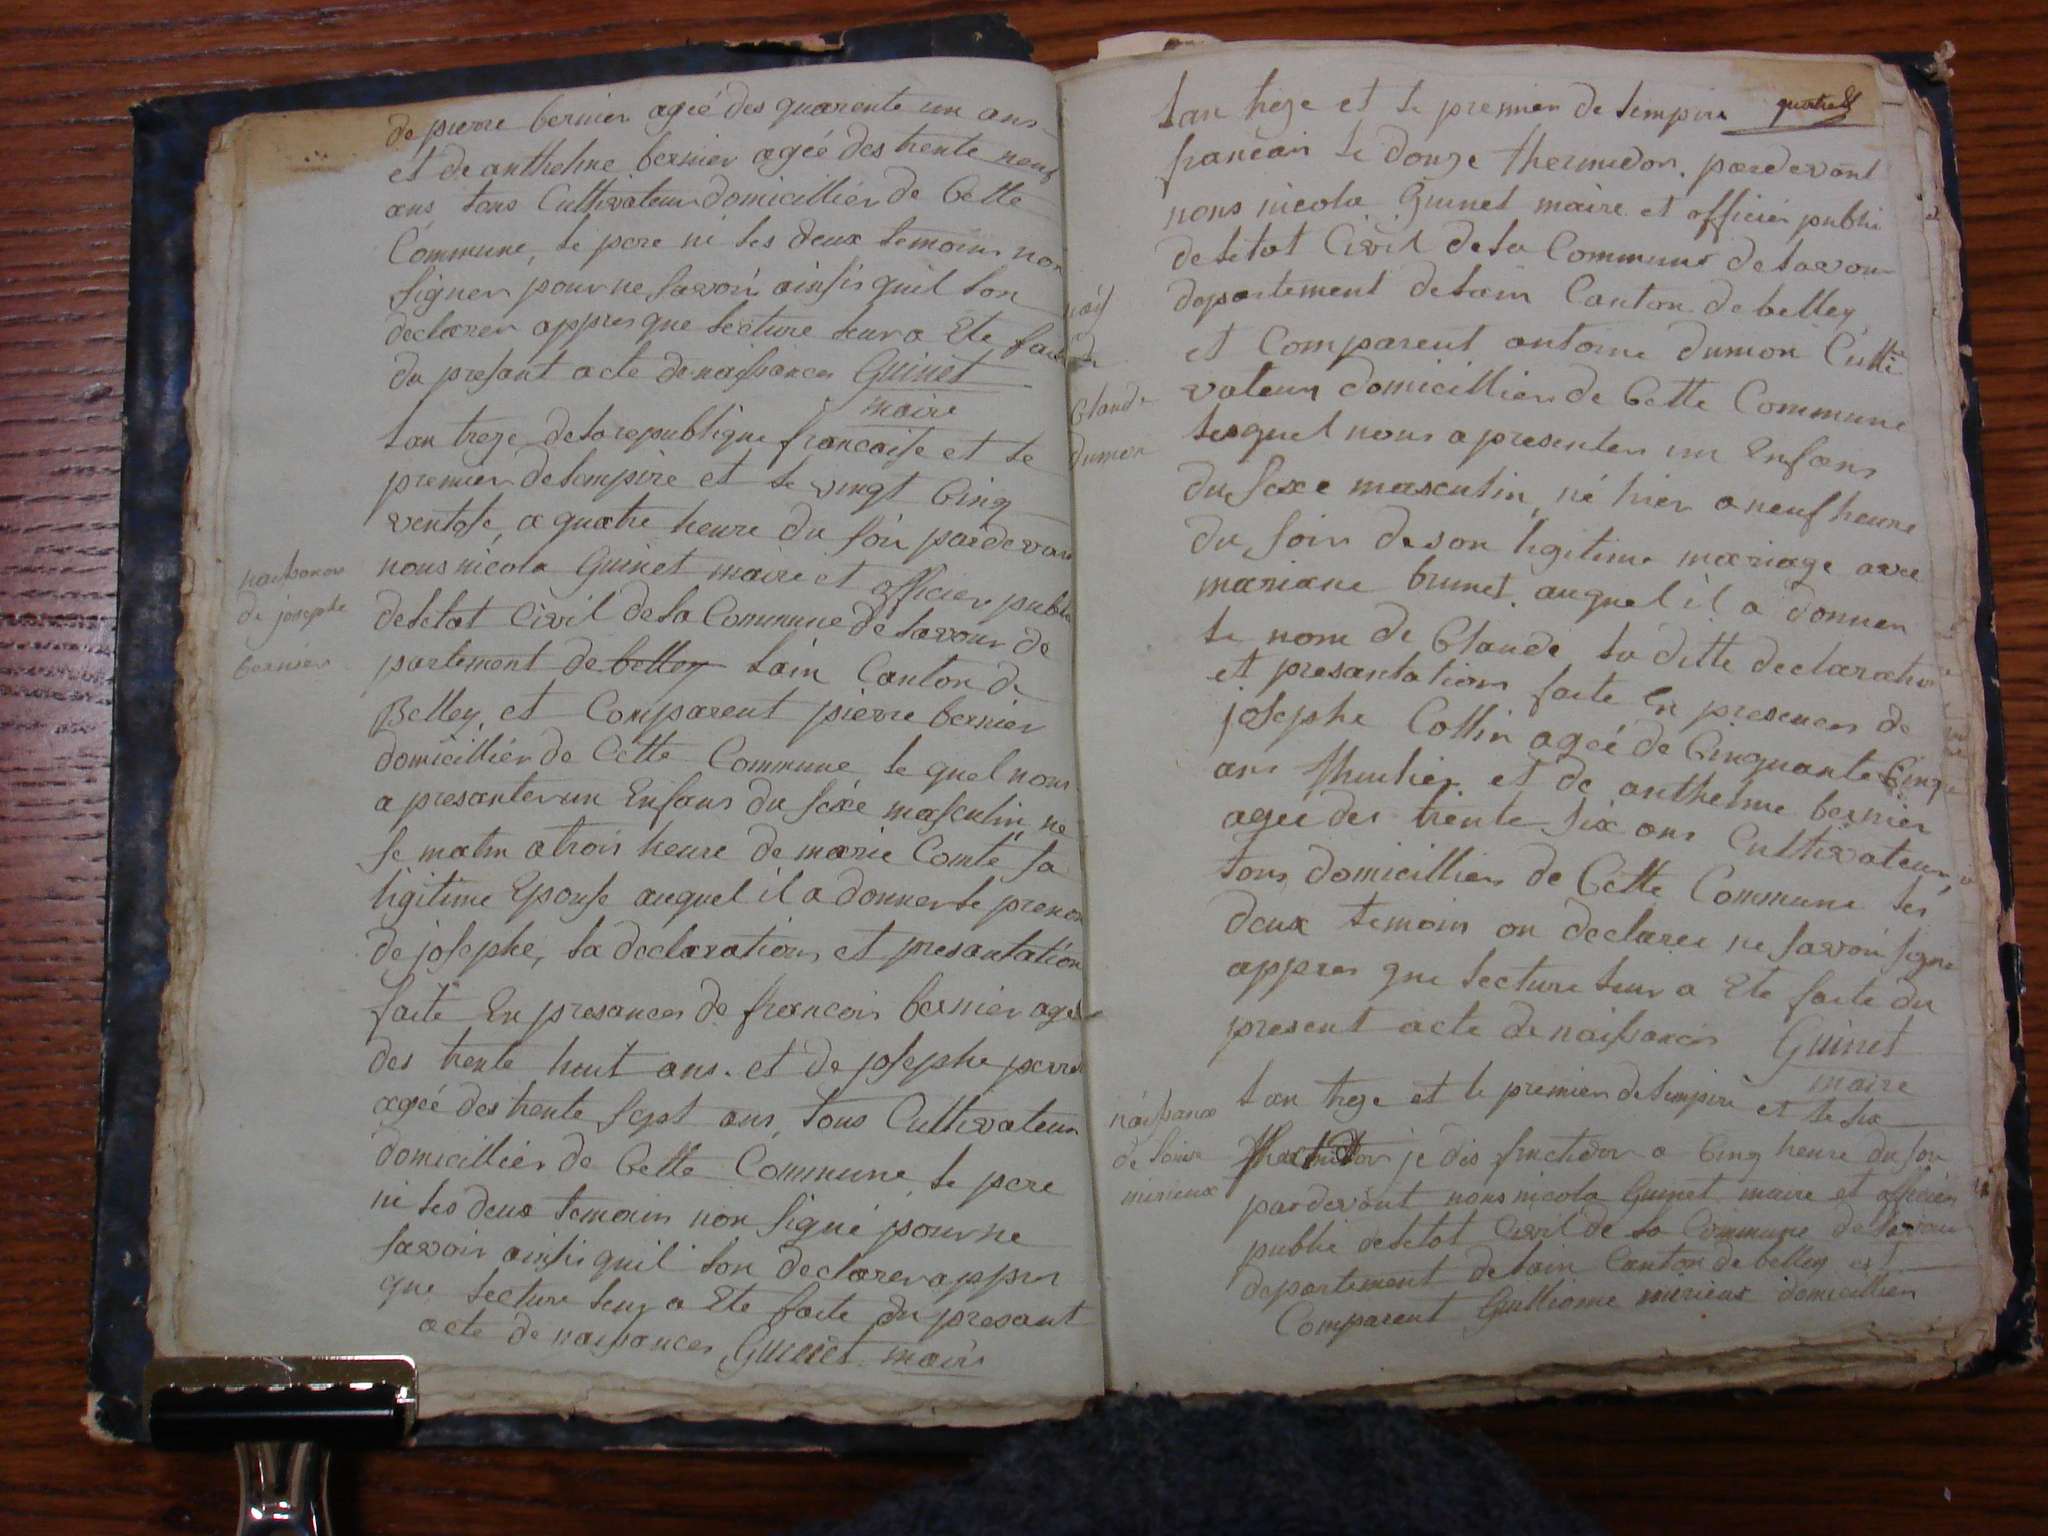 de pierre bernier ageé des quarente un ans
et de anthelme bernier ageé des trente neuf
ans, tous Cultivateur domicillier de Cette
Commune, le pere ni les deux temoins non
signer pour ne savoir ainsis quil lon
declarer appres que lecture leur a Ete faite
du presant acte de naissances Guinet
maire
lan treze de la republique francaise et le
premier de lempire et le vingt Cinq
ventose, a quatre heure du soir pardevant
nous nicola Guinet maire et officier public
de letat Civil de la Commune de lavour de
partement de belley lain Canton de
Belley, et Comparent pierre bernier
domicillier de Cette Commune, le quel nous
a presanter un Enfans du sexe masculin, ne
se matin a trois heure de marie Comte sa
ligitime Epouse auquel il a donner le prenon
de josephe, la declarations et presantation
faite En presances de francois bernier agé
des trente huit ans. et de josephe perret
ageé des trente sept ans, tous Cultivateur
domicillier de Cette Commune, le pere
ni les deux temoins non signé pour ne
savoir ainsis quil lon declarer appres
que lecture leur a Ete faite du presant
acte de naissances, Guinet maire
naissances
de josephe
bernier
quatre
lan treze et le premier de lempire
francais le douze thermidor. pardevant
nous nicola Guinet maire et officier publi
de letat Civil de la Commune de lavour
departement de lain Canton de belley
et Comparent antoine dumon Culti
vateur domicillier de Cette Commune
lesquel nous a presenter un Enfans
du sexe masculin, né hier a neuf heure
du soir de son ligitime mariage avec
mariane brunet. auquel il a donner
le nom de Claude la ditte declaration
et presantations faite En presences de
josephe Collin ageé de Cinquante Cinq
ans thuilier. et de anthelme bernier
ageé des trente six ans Cultivateur,
tous domicillier de Cette Commune les
deux temoin on declarer ne savoir signe
appres que lecture leur a Ete faite du
present acte de naissances Guinet
maire
nais
de
Claude
dumon
lan treze et le premier de lempire et le six
thermidor je dis fructidor a Cinq heure du soir
pardevant nous nicola Guinet maire et officier
public de letat Civil de la Commune de lavour
departement de lain Canton de belley et
Comparent Gulliome mirieux domicillier
naissance
de louise
mirieux